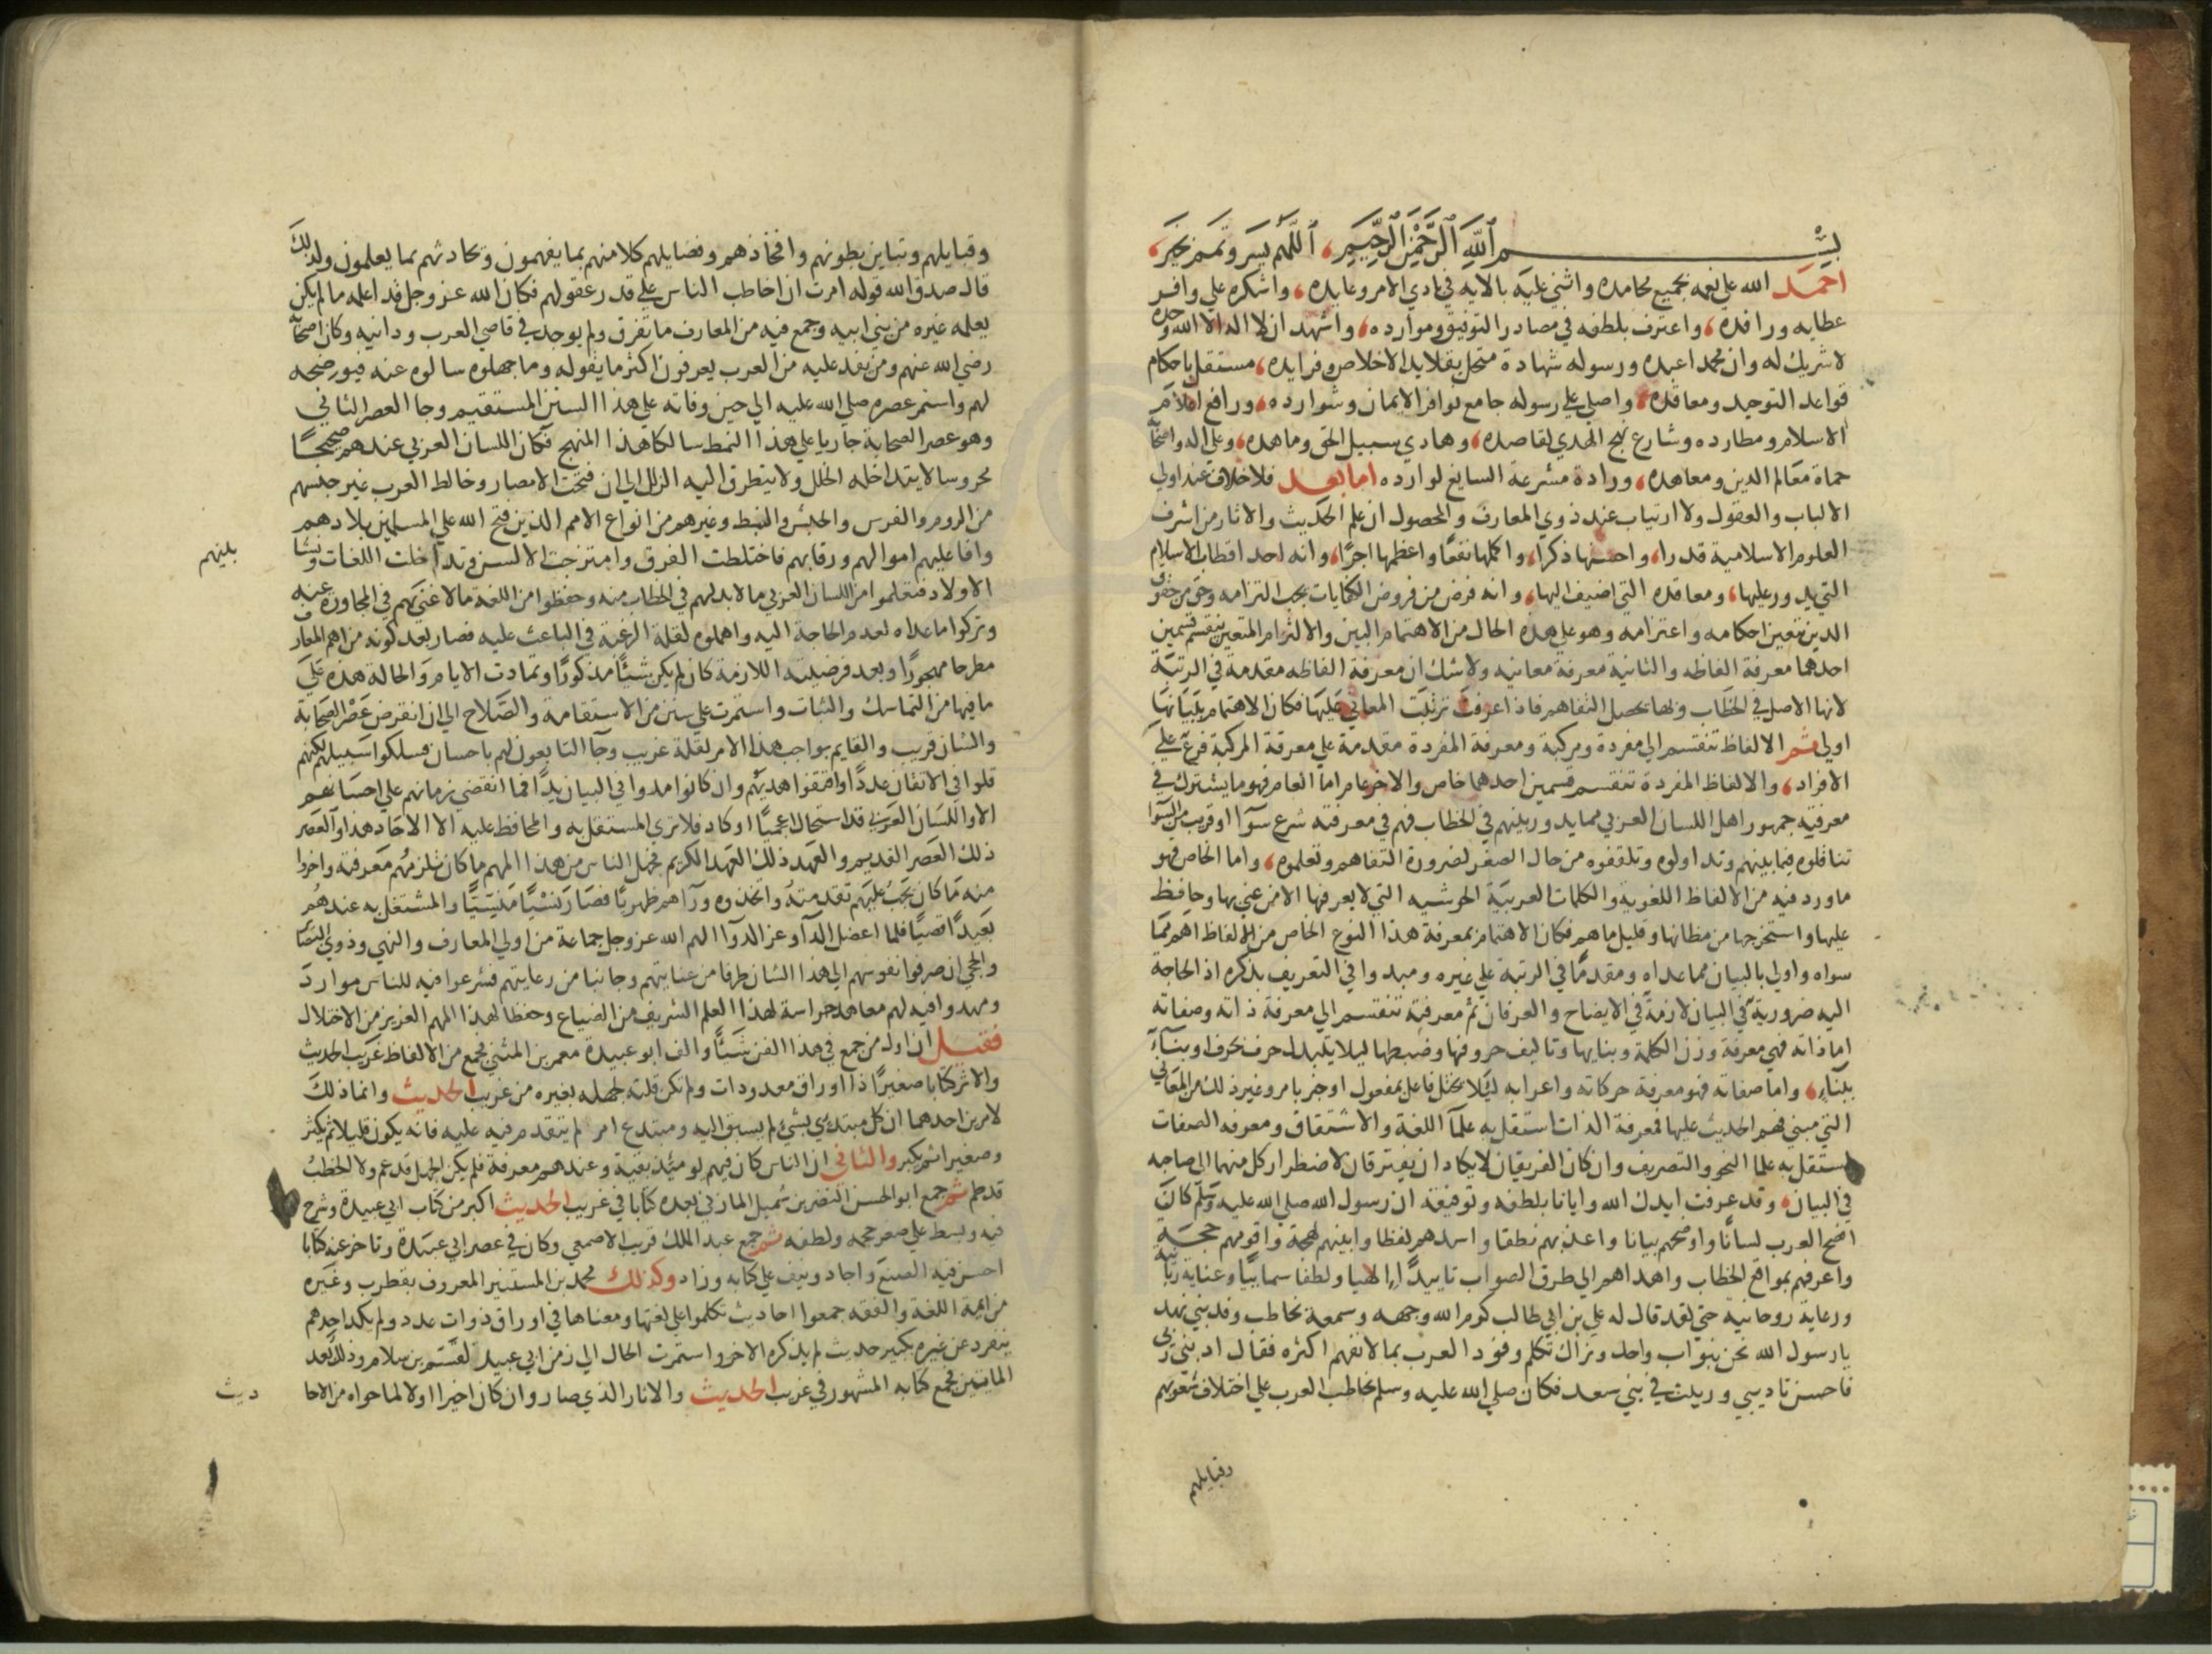 بسم الله الرحمن الرحيم، اللهم يسر وتمم بخير،
احمد الله علي نعمه بجميع محامده واثني عليه بالايه في بادي الامر وعايده، واشكره علي وافر
عطايه ورافده، واعترف بلطفه في مصادر التوفيق وموارده، واشهد ان لا اله الا الله وحده
لا شريك له وان محمدا عبده ورسوله شهادة متحل بقلايد الاخلاص وفرايده، مستقل باحكام
قواعد التوحيد ومعاقده، واصلي علي رسوله جامع نوافر الايمان وشوارده، ورافع اعلام
الاسلام ومطارده وشارع نهج الهدي لقاصده، وهادي سبيل الحق وماهده، وعلي اله واصحابه
حماة معالم الدين ومعاهده، ورادة مشرعة السايغ لوارده اما بعد فلا خلاف عند اولي
الالباب والعقول ولا ارتياب عند ذوي المعارف والمحصول ان علم الحديث والاثار من اشرف
العلوم الاسلامية قدرا، واحسنها ذكرا، واكملها نفعا واعظمها اجرا، وانه احد اقطاب الاسلام
التي يدور عليها، ومعاقده التي اضيف اليها، وانه فرض من فروض الكفايات يجب التزامه وحق من حقوق
الدين يتعين احكامه واعتزامه وهو علي هذه الحال من الاهتمام البين والالتزام المتعين ينقسم قسمين
احدهما معرفة الفاظه والثانية معرفة معانيه ولا شك ان معرفة الفاظه مقدمة في الرتبة
لانها الاصل في الخطاب وبها يحصل التفاهم فاذا عرفت ترتبت المعاني عليها فكان الاهتمام ببيانها
اولي ثم الالفاظ تنقسم الي مفردة ومركبة ومعرفة المفردة مقدمة علي معرفة المركبة فرع علي
الافراد، والالفاظ المفردة تنقسم قسمين احدهما خاص والاخر عام اما العام فهو ما يشترك في
معرفته جمهور اهل اللسان العربي مما يدور بينهم في الخطاب فهم في معرفته شرع سوآ او قريب من السوآ
تناقلوه فيما بينهم وتداولوه وتلقفوه من حال الصغر لضرورة التفاهم وتعلموه، واما الخاص فهو
ما ورد فيه من الالفاظ اللغوية والكلمات العربية الحوشيه التي لا يعرفها الا من عني بها وحافظ
عليها واستخرجها من مظانها وقليل ما هم فكان الاهتمام بمعرفة هذا النوع الخاص من الالفاظ اهم مما
سواه واولي بالبيان مما عداه ومقدما في الرتبة علي غيره ومبدوا في التعريف بذكره اذ الحاجة
اليه ضرورية في البيان لازمة في الايضاح والعرفان ثم معرفته تنقسم الي معرفة ذاته وصفاته
اما ذاته فهي معرفة وزن الكلمة وبنايها وتاليف حروفها وضبطها ليلا يتبدل حرف بحرف او بنآء
ببنآء، واما صفاته فهو معرفة حركاته واعرابه ليلا يختل فاعل بمفعول او خبر بامر وغير ذلك من المعاني
التي مبني فهم الحديث عليها فمعرفة الذات استقل به علمآ اللغة والاشتقاق ومعرفه الصفات
استقل به علما النحو والتصريف وان كان الفريقان لا يكادان يفترقان لاضطرار كل منهما الي صاحبه
في البيان، وقد عرفت ايدك الله وايانا بلطفه وتوفيقه ان رسول الله صلي الله عليه وسلم كان
افصح العرب لسانا واوضحهم بيانا واعذبهم نطقا واسدهم لفظا وابينهم لهجة واقومهم حجة
واعرفهم بمواقع الخطاب واهداهم الي طرق الصواب تاييدا الاهيا ولطفا سماييا وعناية ربانيه
ورعاية روحانية حتي لقد قال له علي بن ابي طالب كرم الله وجهه وسمعه يخاطب وفد بني نهد
يا رسول الله نحن بنو اب واحد ونراك تكلم وفود العرب بما لا نفهم اكثره فقال ادبني ربي
فاحسن تاديبي وربيت في بني سعد فكان صلي الله عليه وسلم يخاطب العرب علي اختلاف شعوبهم
وقبايلهم
وقبايلهم وتباين بطونهم وافخاذهم وفصايلهم كلا منهم بما يفهمون ويحادثهم بما يعلمون ولذلك
قال صدق الله قوله امرت ان اخاطب الناس علي قدر عقولهم فكان الله عز وجل قد اعلمه ما لم يكن
يعلمه غيره من بني ابيه وجمع فيه من المعارف ما تفرق ولم يوجد في قاصي العرب ودانيه وكان اصحابه
رضي الله عنهم ومن يفد عليه من العرب يعرفون اكثر ما يقوله وما جهلوه سالوه عنه فيوضحه
لهم واستمر عصره صلي الله عليه الي حين وفاته علي هذا السنن المستقيم وجا العصر الثاني
وهو عصر الصحابة جاريا علي هذا النمط سالكا هذا المنهج فكان اللسان العربي عندهم صحيحا
محروسا لا يتداخله الخلل ولا يتطرق اليه الزلل الي ان فتحت الامصار وخالط العرب غير جنسهم
من الروم والفرس والحبش والنبط وغيرهم من انواع الامم الذين فتح الله علي المسلمين بلادهم
وافا عليهم اموالهم ورقابهم فاختلطت الفرق وامتزجت الالسن وتداخلت اللغات ونشا
بينهم
الاولاد فتعلموا من اللسان العربي ما لا بد لهم في الخطاب منه وحفظوا من اللغة ما لا غني لهم في المحاورة عنه
وتركوا ما عداه لعدم الحاجة اليه واهملوه لقلة الرغبة في الباعث عليه فصار بعد كونه من اهم المعارف
مطرحا مهجورا وبعد فرضيته اللازمة كان لم يكن شيئا مذكورا وتمادت الايام والحالة هذه علي
ما فيها من التماسك والثبات واستمرت علي سنن من الاستقامة والصلاح الي ان انقرض عصر الصحابة
والشان قريب والقايم بواجب هذا الامر لقلة غريب وجآ التابعون لهم باحسان فسلكوا سبيلهم لكنهم
قلوا في الاتقان عددا واقتفوا هديهم وان كانوا مدوا في البيان يدا فما انقضي زمانهم علي احسانهم
الا واللسان العربي قد استحال اعجميا او كاد فلا تري المستقل به والمحافظ عليه الا الاحاد هذا والعصر
ذلك العصر القديم والعهد ذلك العهد الكريم فجهل الناس من هذا المهم ما كان يلزمهم معرفته واخروا
منه ما كان يجب عليهم تقدمته واتخذوه ورآهم ظهريا فصار نسيا منسيا والمشتغل به عندهم
بعيدا قصيا فلما اعضل الدآ وعز الدوآ الهم الله عز وجل جماعة من اولي المعارف والنهي وذوي البصاير
والحجي ان صرفوا نفوسهم الي هذا الشان طرفا من عنايتهم وجانبا من رعايتهم فشرعوا فيه للناس موارد
ومهدوا فيه لهم معاهد حراسة لهذا العلم الشريف من الضياع وحفظا لهذا المهم العزيز من الاختلال
فقيل ان اول من جمع في هذا الفن شيئا والف ابو عبيدة معمر بن المثني فجمع من الالفاظ غريب الحديث
والاثر كتابا صغيرا ذا اوراق معدودات ولم تكن قلته لجهله بغيره من غريب الحديث وانما ذلك
لامرين احدهما ان كل مبتدي بشيء لم يسبق اليه ومبتدع امر لم يتقدم فيه عليه فانه يكون قليلا ثم يكثر
وصغيرا ثم يكبر والثاني ان الناس كان فيهم يومئذ بقية وعندهم معرفة فلم يكن الجهل قد عم ولا الخطب
قد طم ثم جمع ابو الحسن النضر بن شميل المازني بعده كتابا في غريب الحديث اكبر من كتاب ابي عبيدة وشرح
فيه وبسط علي صغر حجمه ولطفه ثم جمع عبد الملك قريب الاصمعي وكان في عصر ابي عبيدة وتاخر عنه كتابا
احسن فيه الصنع واجاد ونيف علي كتابه وزاد وكذلك محمد بن المستنير المعروف بقطرب وغيره
من ايمة اللغة والفقه جمعوا احاديث تكلموا علي لغتها ومعناها في اوراق ذوات عدد ولم يكد احدهم
ينفرد عن غيره بكبير حديث لم يذكره الاخر واستمرت الحال الي زمن ابي عبيد القسم بن سلام وذلك بعد
المايتين فجمع كتابه المشهور في غريب الحديث والاثار الذي صار وان كان اخيرا اولا لما حواه من الاحا
ديث